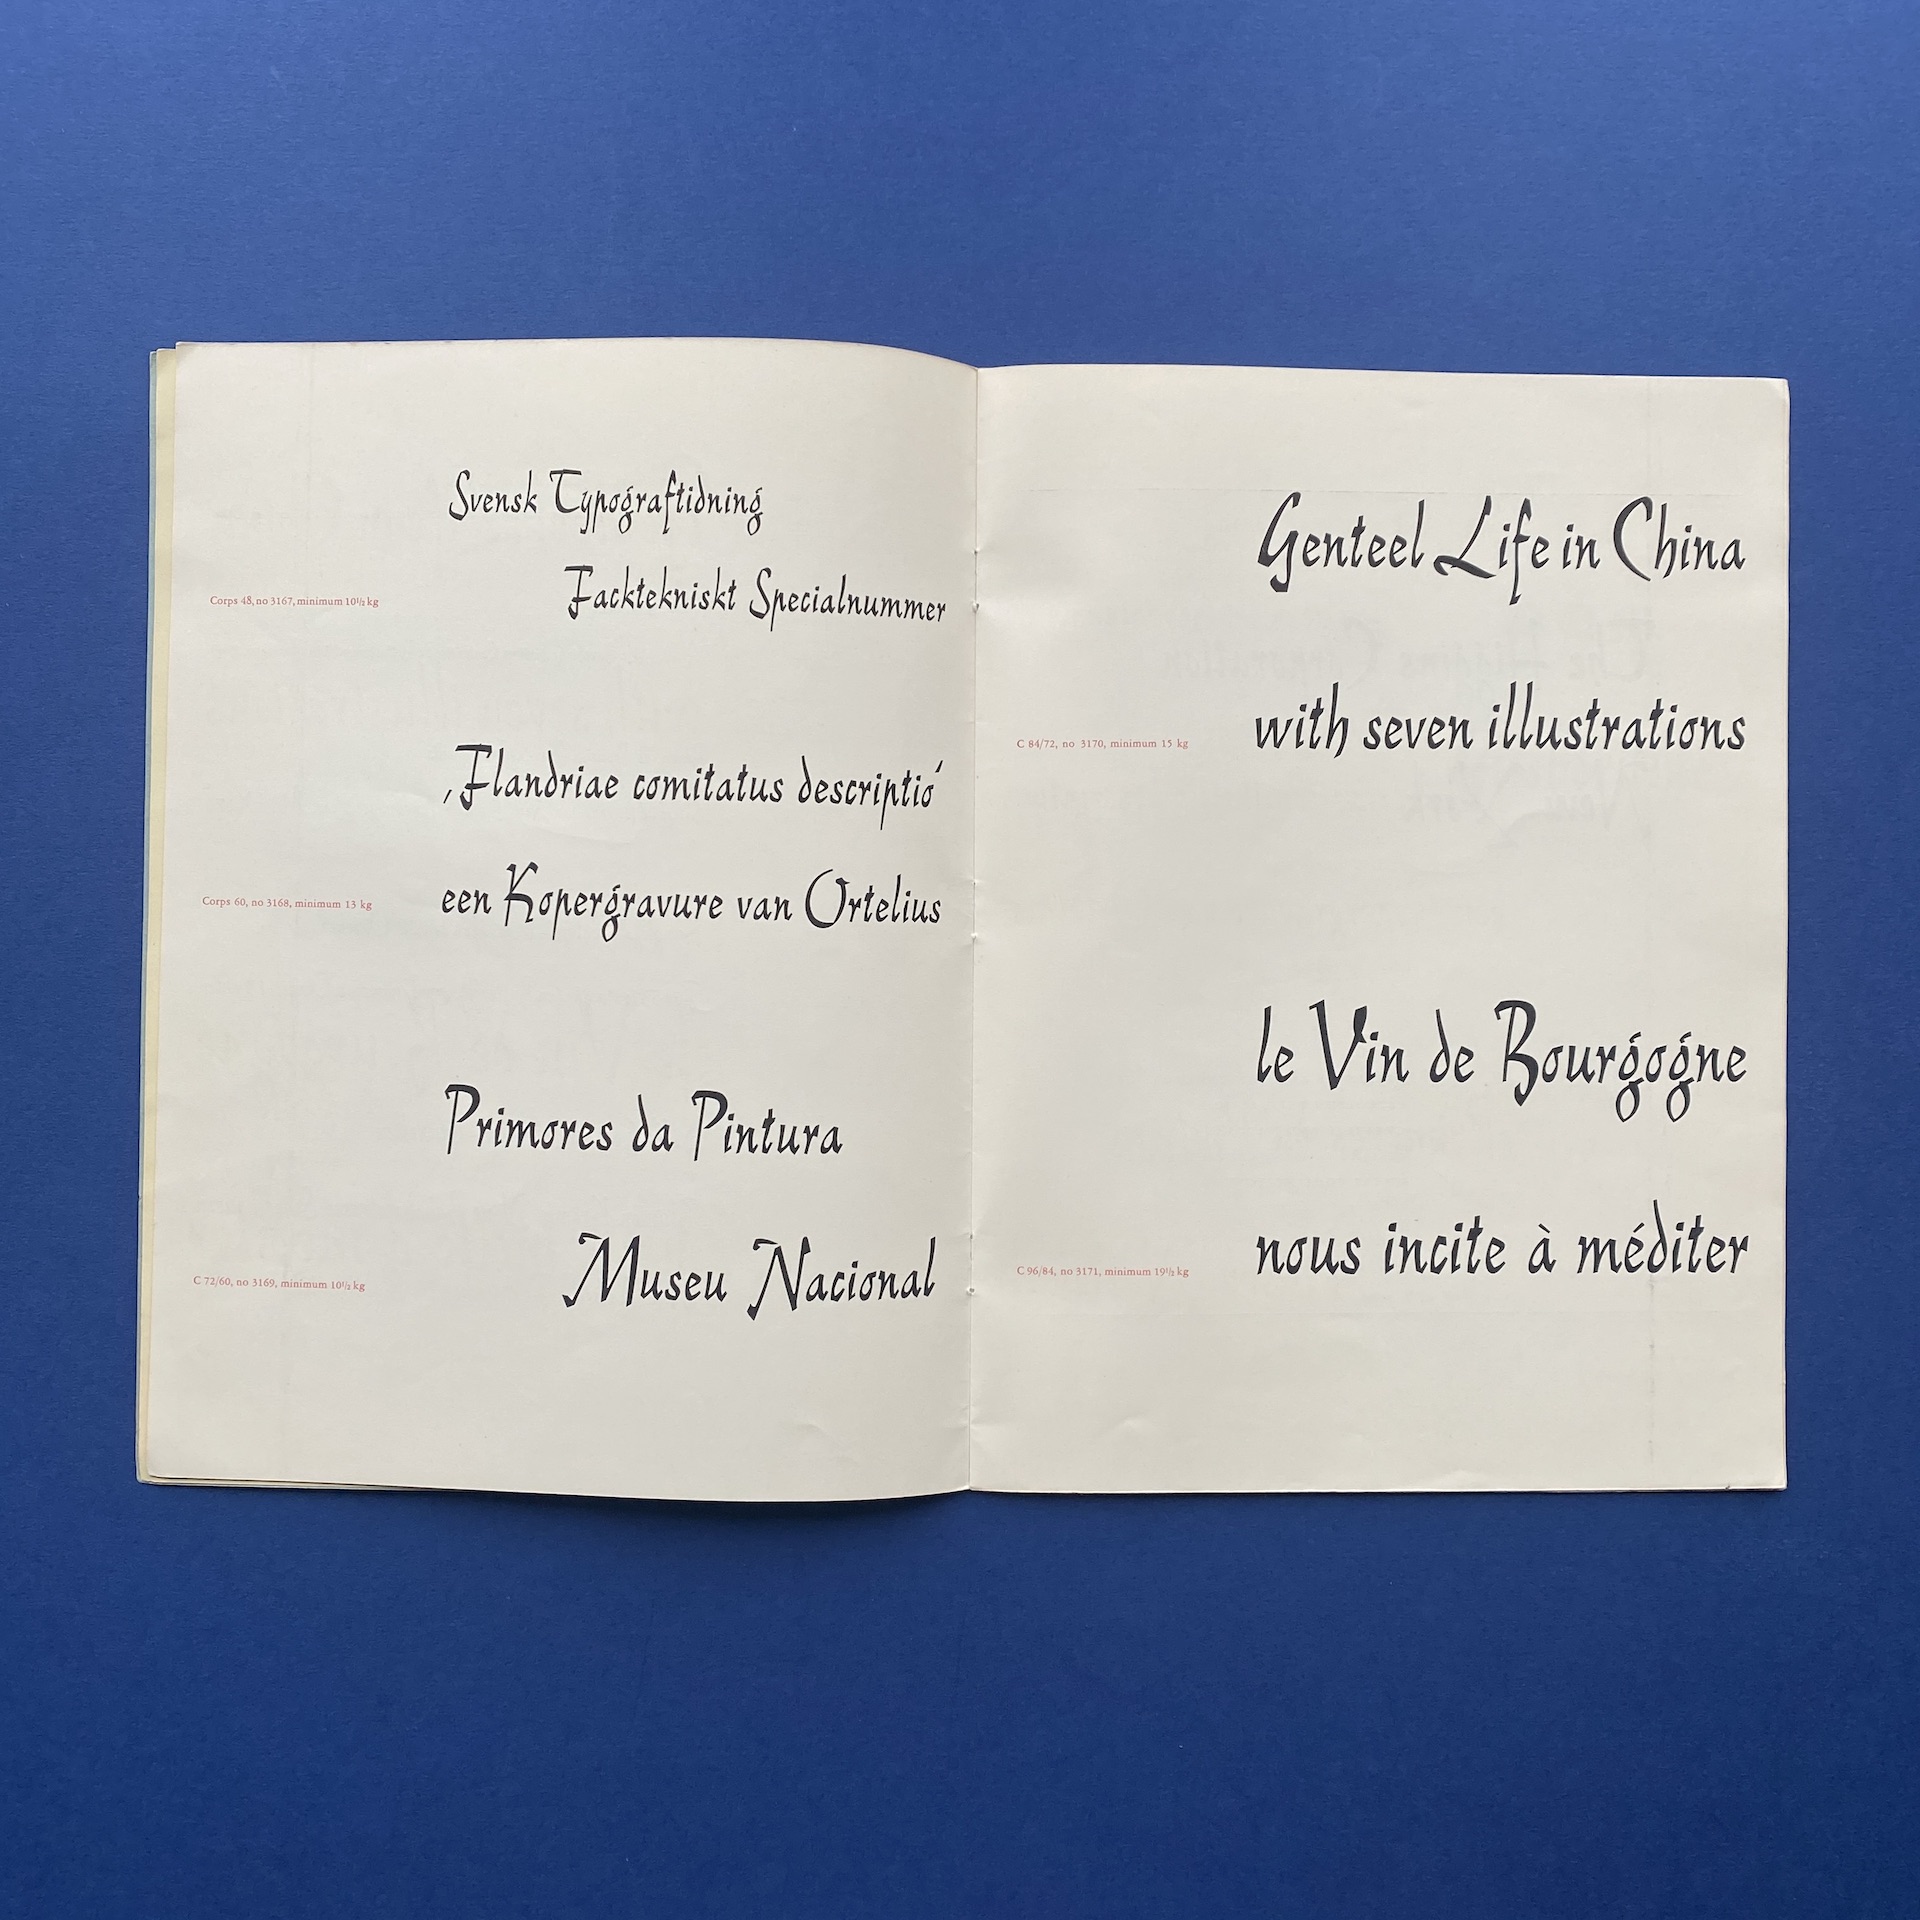 Svensk Typograftidning
Facktekniskt Specialnummer
Corps 48, no 3167, minimum 10½ kg
‚Flandriae comitatus descriptio‘
een Kopergravure van Ortelius
Corps 60, no 3168, minimum 13 kg
Primores da Pintura
Museu Nacional
C 72/60, no 3169, minimum 10½ kg
Genteel Life in China
with seven illustrations
C 84/72, no 3170, minimum 15 kg
le Vin de Bourgogne
nous incite à méditer
C 96/84, no 3171, minimum 19½ kg